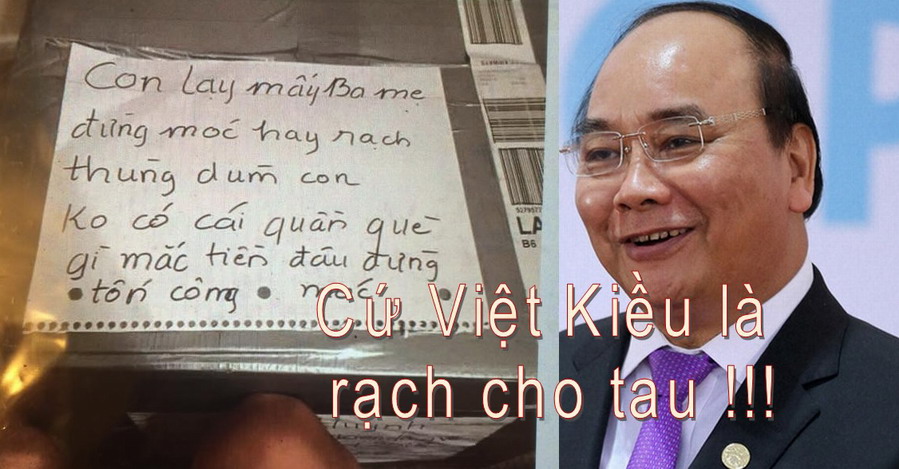 Con lạy mấy Ba mẹ
đừng moć hay rạch
thùng dùm con
Ko có cái quần què
gì mắc tiền đâu đừng
tốn công
LA
B6
Cứ Việt Kiều là
rạch cho tau !!!